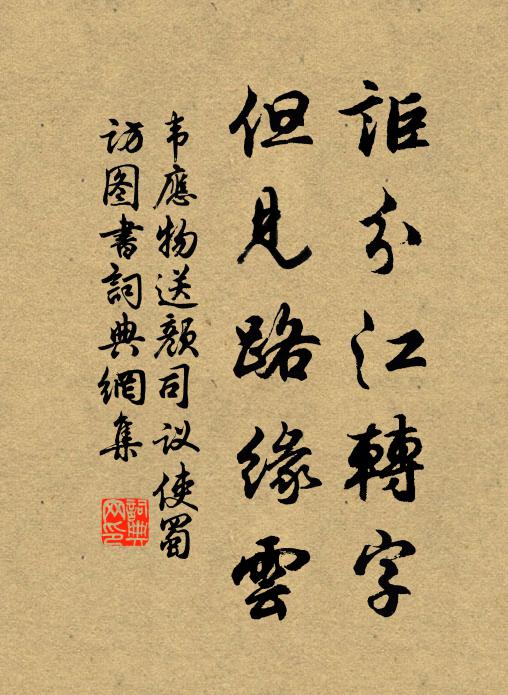 詎分江轉字
但見路緣雲
韦應物送颜司议使蜀
访图書詞典網集
詞典網印